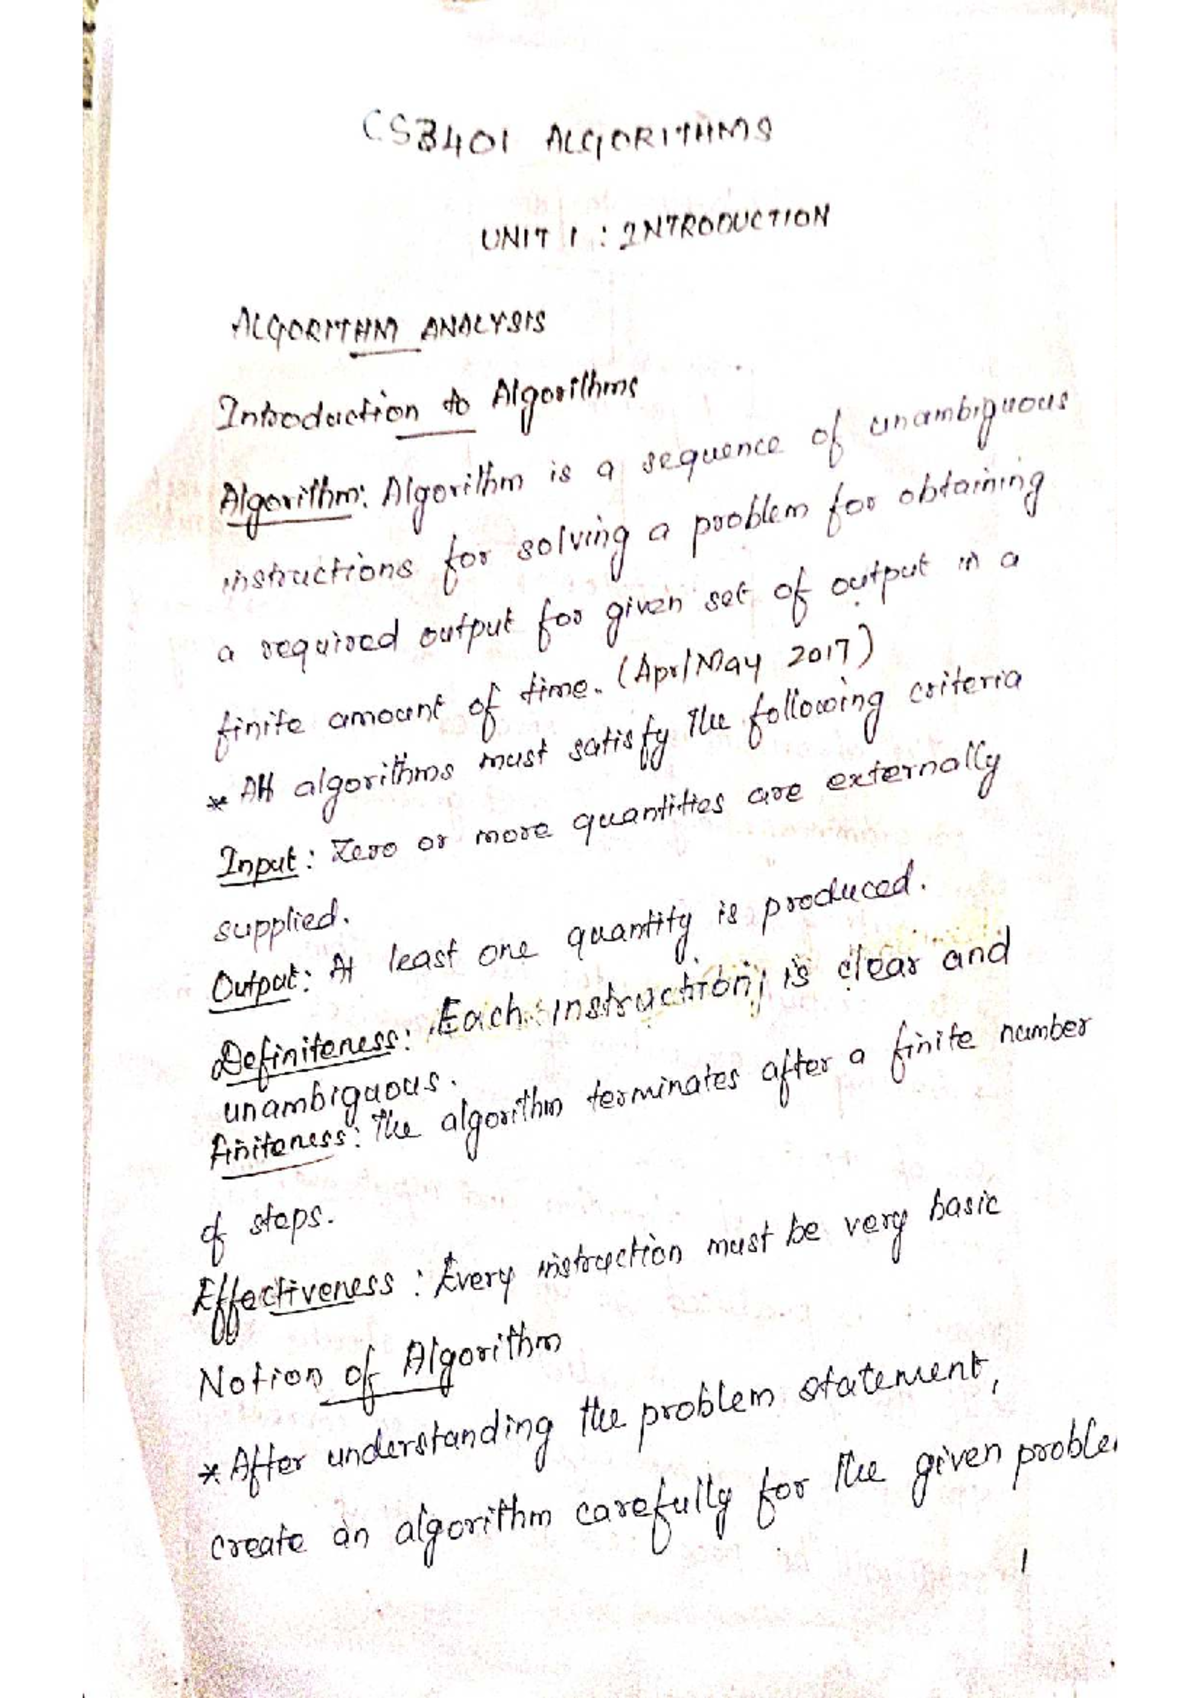 CS3401 ALGORITHMS
UNIT 1 : INTRODUCTION
ALGORITHM ANALYSIS
Introduction to Algorithms
Algorithm: Algorithm is a sequence of unambiguous
instructions for solving a problem for obtaining
a required output for given set of output in a
finite amount of time. (Apr/May 2017)
* All algorithms must satisfy the following criteria
Input: Zero or more quantities are externally
supplied.
Output: At least one quantity is produced.
Definiteness: Each instruction is clear and
unambiguous.
Finiteness: The algorithm terminates after a finite number
of steps.
Effectiveness: Every instruction must be very basic
Notion of Algorithm
* After understanding the problem statement,
create an algorithm carefully for the given proble
1